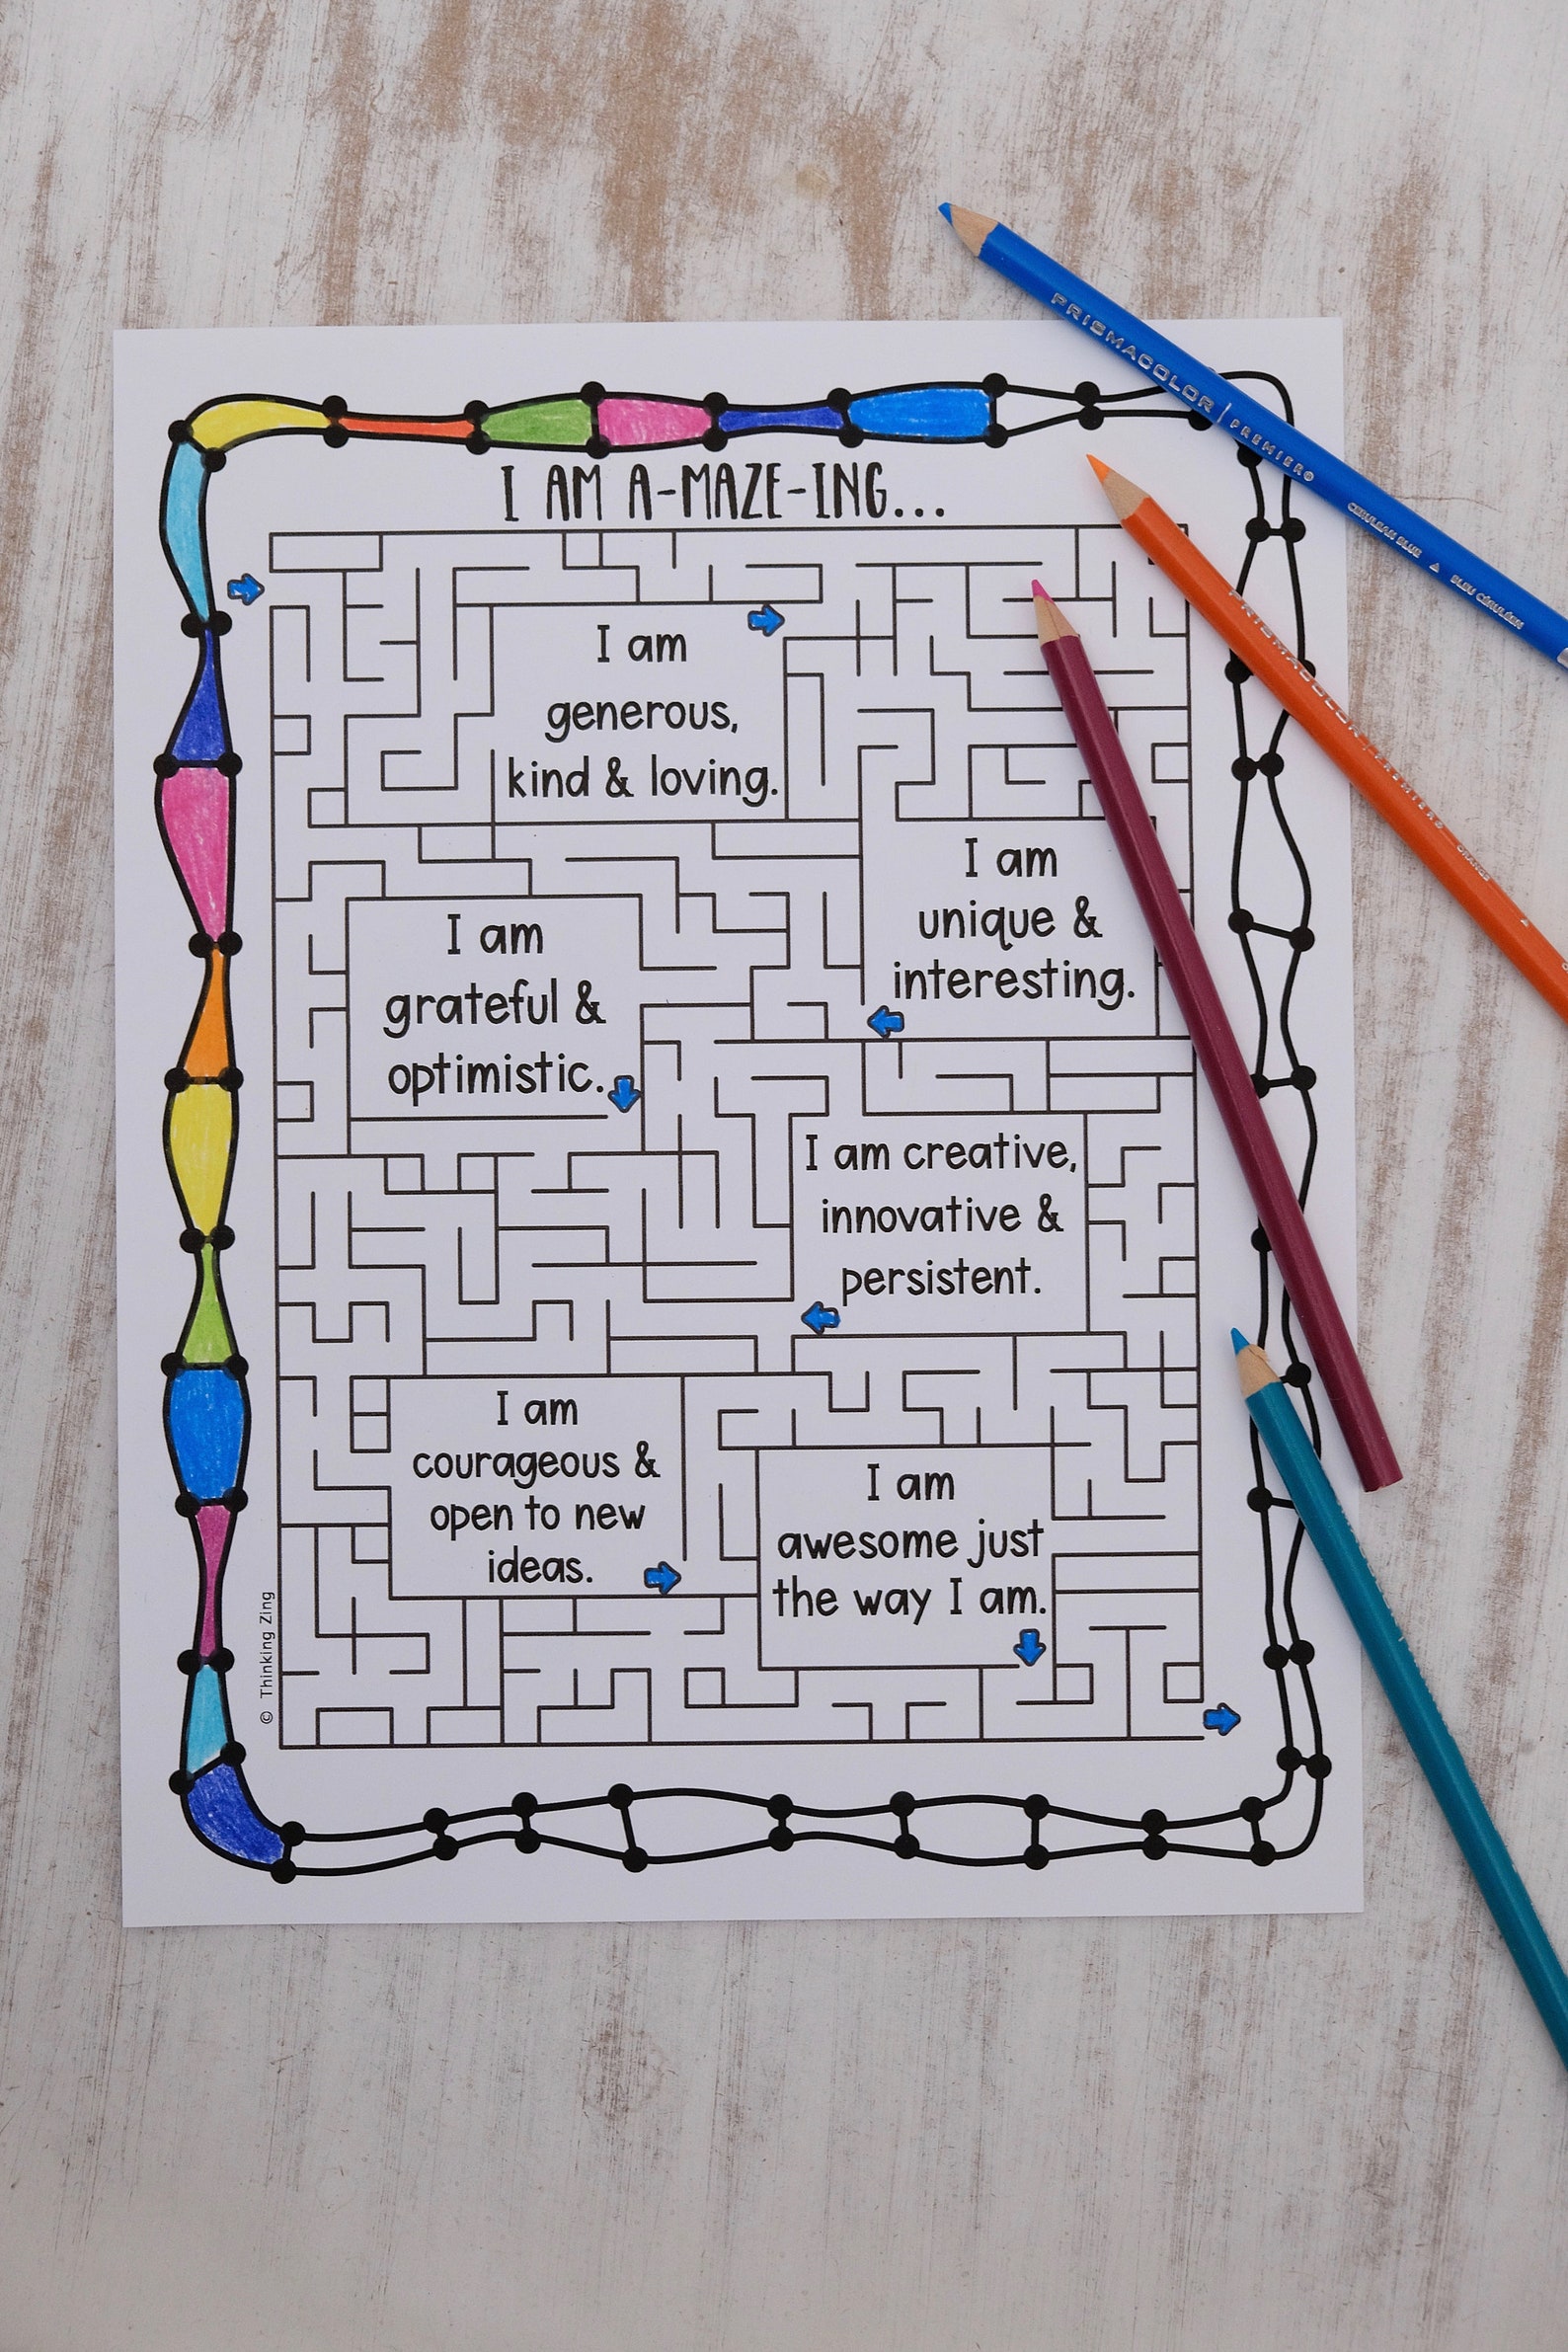 I AM A-MAZE-ING...
I am
generous,
kind & loving.
I am
unique &
interesting.
I am
grateful &
optimistic.
I am creative,
innovative &
persistent.
I am
courageous &
open to new
ideas.
I am
awesome just
the way I am.
© Thinking Zing
PRISMACOLOR | PREMIER® CERULEAN BLUE BLEU CÉRULÉEN
PRISMACOLOR PREMIER® ORANGE